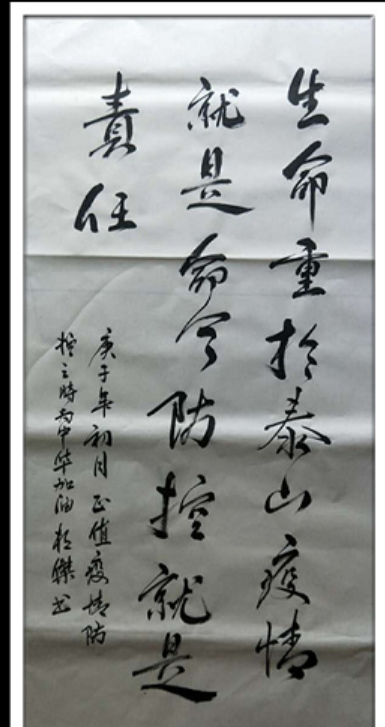 生命重於泰山疫情
就是命令防控就是
責任
庚子年初月正值疫情防
控之時為中华加油 傑书